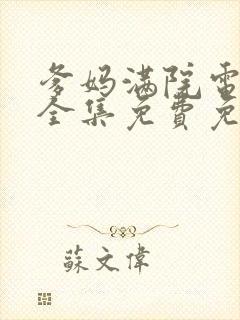 爹妈满院電
全集免費免
蘇文偉